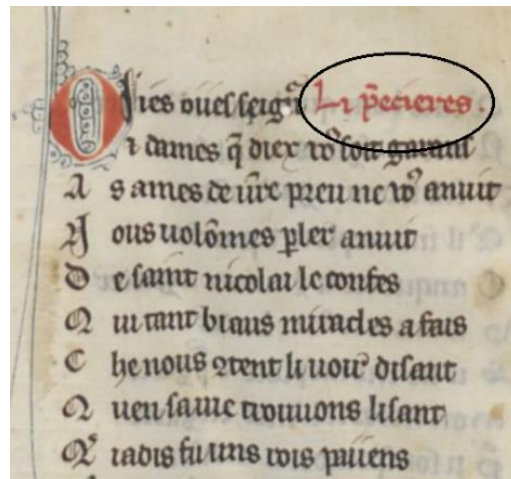 Oies oues seign̄ Li p̄ecieres.
⁊ dames q̃ diex vꝰ soit garant
A s ames de ūre preu ne vꝰ anuit
N ous uolōmes ꝑler anuit
D e saint nicolai le confes
Q ui tant biaus miracles a fais
C he nous ꝯtent li uoir disant
Q uen sa uie trouuons lisant
Q' iadis fu uns rois paiiens